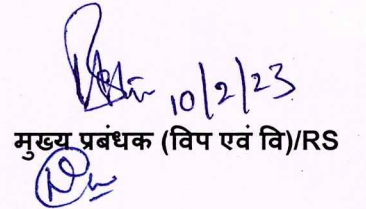 10/2/23
मुख्य प्रबंधक (विप एवं वि)/RS